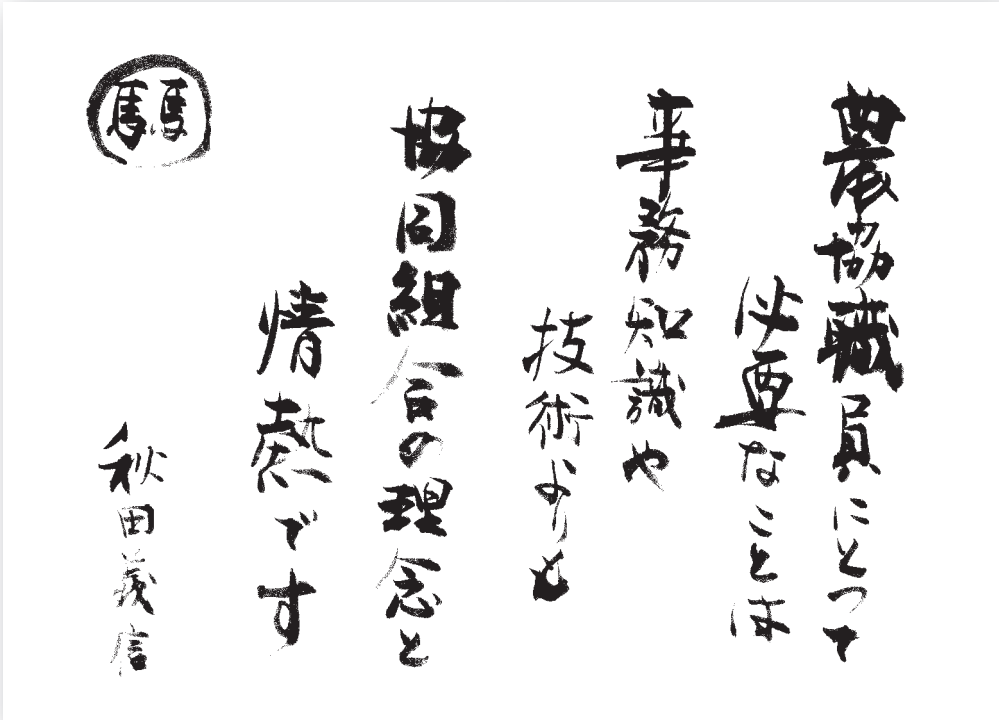 農協職員にとって
必要なことは
事務知識や
技術よりも
協同組合の理念と
情熱です
秋田義信